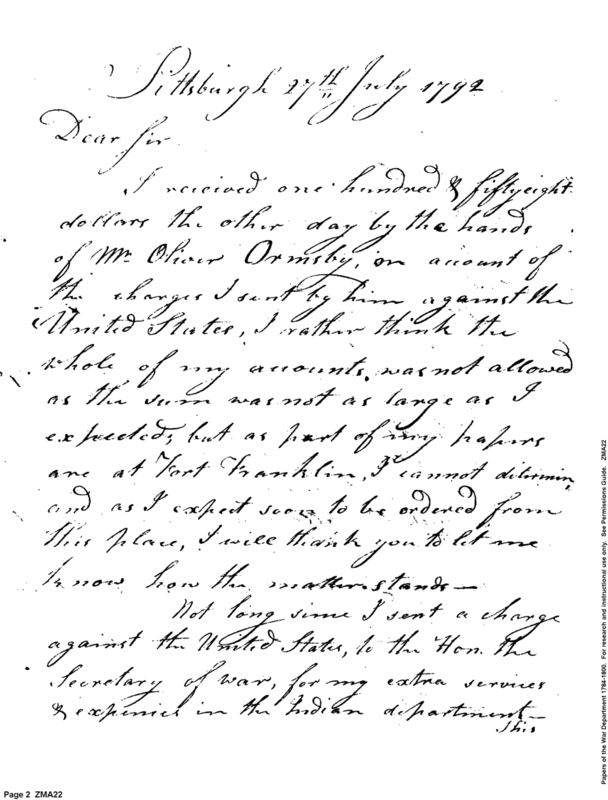 Pittsburgh 27th July 1792
Dear Sir
I received one hundred & fiftyeight
dollars the other day by the hands
of Mr Oliver Ormsby, on account of
the charges I sent by him against the
United States, I rather think the
whole of my accounts, was not allowed
as the sum was not as large as I
expected; but as part of my papers
are at Fort Franklin, I cannot determin,
and as I expect soon to be ordered from
this place, I will thank you to let me
know how the matter stands—
Not long since I sent a charge
against the United States, to the Hon. the
Secretary of war, for my extra services
& expenses in the Indian department—
This
Page 2 ZMA22
Papers of the War Department 1784-1800. For research and instructional use only. See Permissions Guide. ZMA22